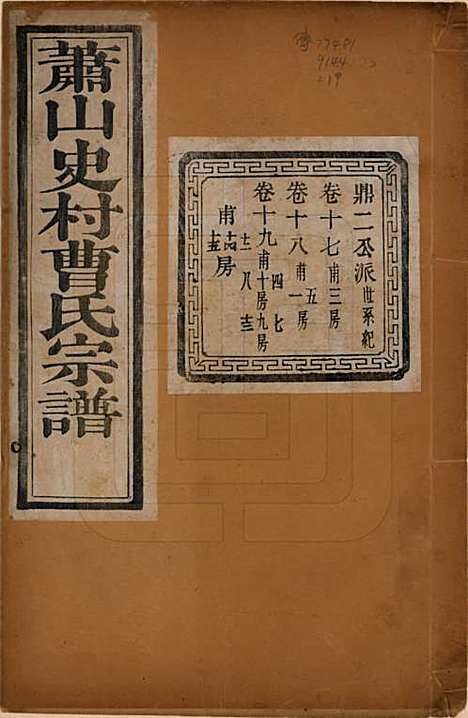 蕭山史村曹氏宗譜
鼎二公派世系紀
卷十七甫三房
卷十八甫一五房
卷十九甫十房九房
四七
十二八十三
甫十四十五房